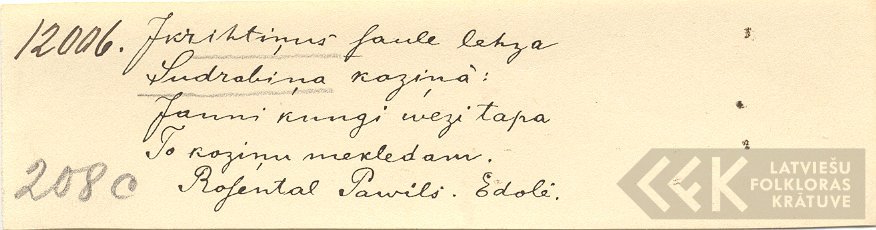 12006. Jkrihtiņus saule lehza
Sudrabiņa koziņâ:
Jauni kungi wezi tapa
To koziņu mekledam.
208 c Rosental Pawils. Edolê.
LATVIEŠU
FOLKLORAS
KRĀTUVE